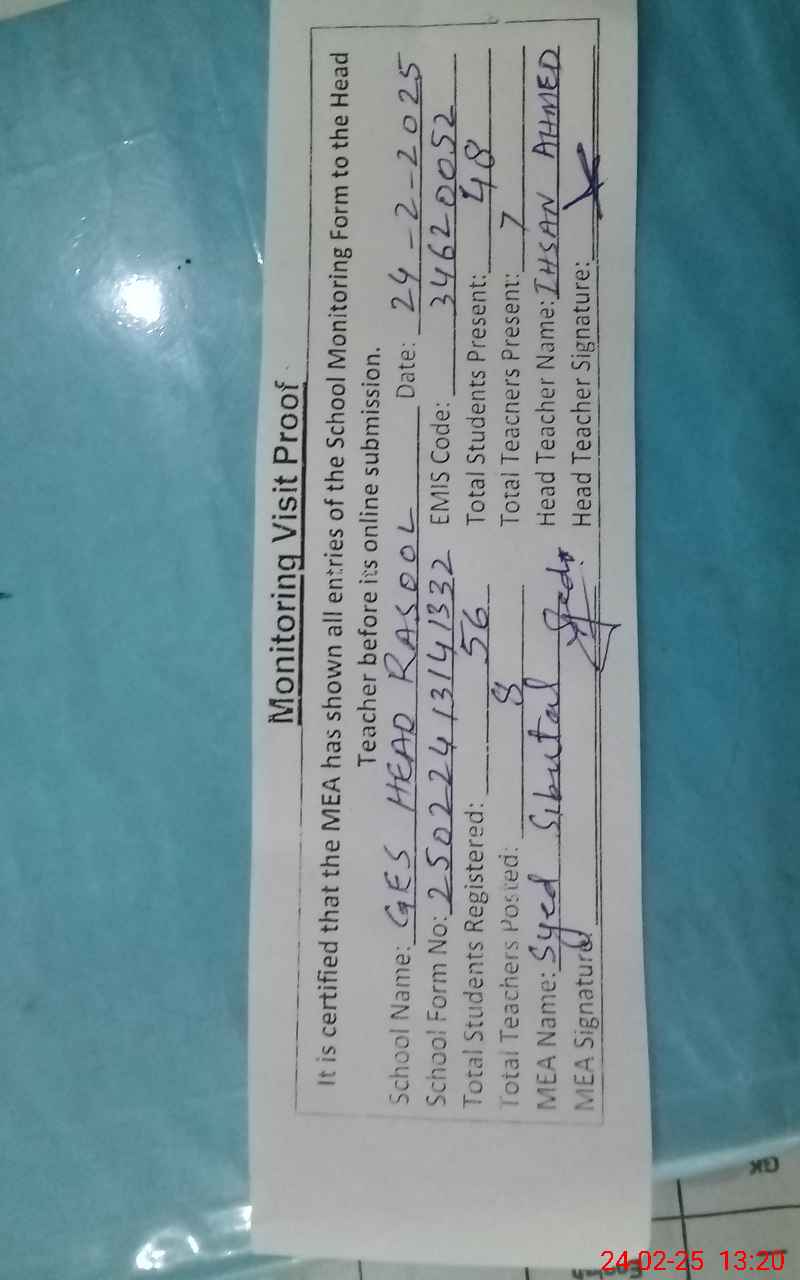 Monitoring Visit Proof
It is certified that the MEA has shown all entries of the School Monitoring Form to the Head
Teacher before its online submission.
School Name: GES HEAD RASOOL Date: 24-2-2025
School Form No: 25022413141332 EMIS Code: 34620052
Total Students Registered: 56 Total Students Present: 48
Total Teachers Posted: 8 Total Teachers Present: 7
MEA Name: Syed Sibutail Head Teacher Name: IHSAN AHMED
MEA Signature: Head Teacher Signature:
GK
English
24-02-25 13:20